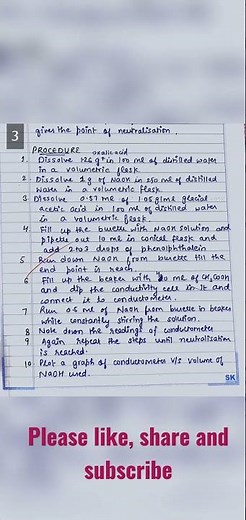 3
gives the point of neutralisation.
PROCEDURE
oxalic acid
1. Dissolve 1.26 g in 100 ml of distilled water
in a volumetric flask
2. Dissolve 2g of NaOH in 250 ml of distilled
water in a volumetric flask
3 Dissolve 0.57 ml of 1.05 g/ml glacial
acetic acid in 100 ml of distilled water
in a volumetric flask.
4. Fill up the burette with NaOH solution and
pipette out 10 ml in conical flask and
add 2 to 3 drops of phenolphthalein
5 Run down NaOH from burette till the
end point is reach.
6 Fill up the beaker with ml of CH3COOH
and dip the conductivity cell in it and
connect it to conductometer.
7 Run 0.5 ml of NaOH from burette to beaker
while constantly stirring the solution.
8 Note down the readings of conductometer
9 Again repeat the steps until neutralisation
is reached.
10 Plot a graph of conductometer v/s volume of
NaOH used.
SK
Please like, share and
subscribe